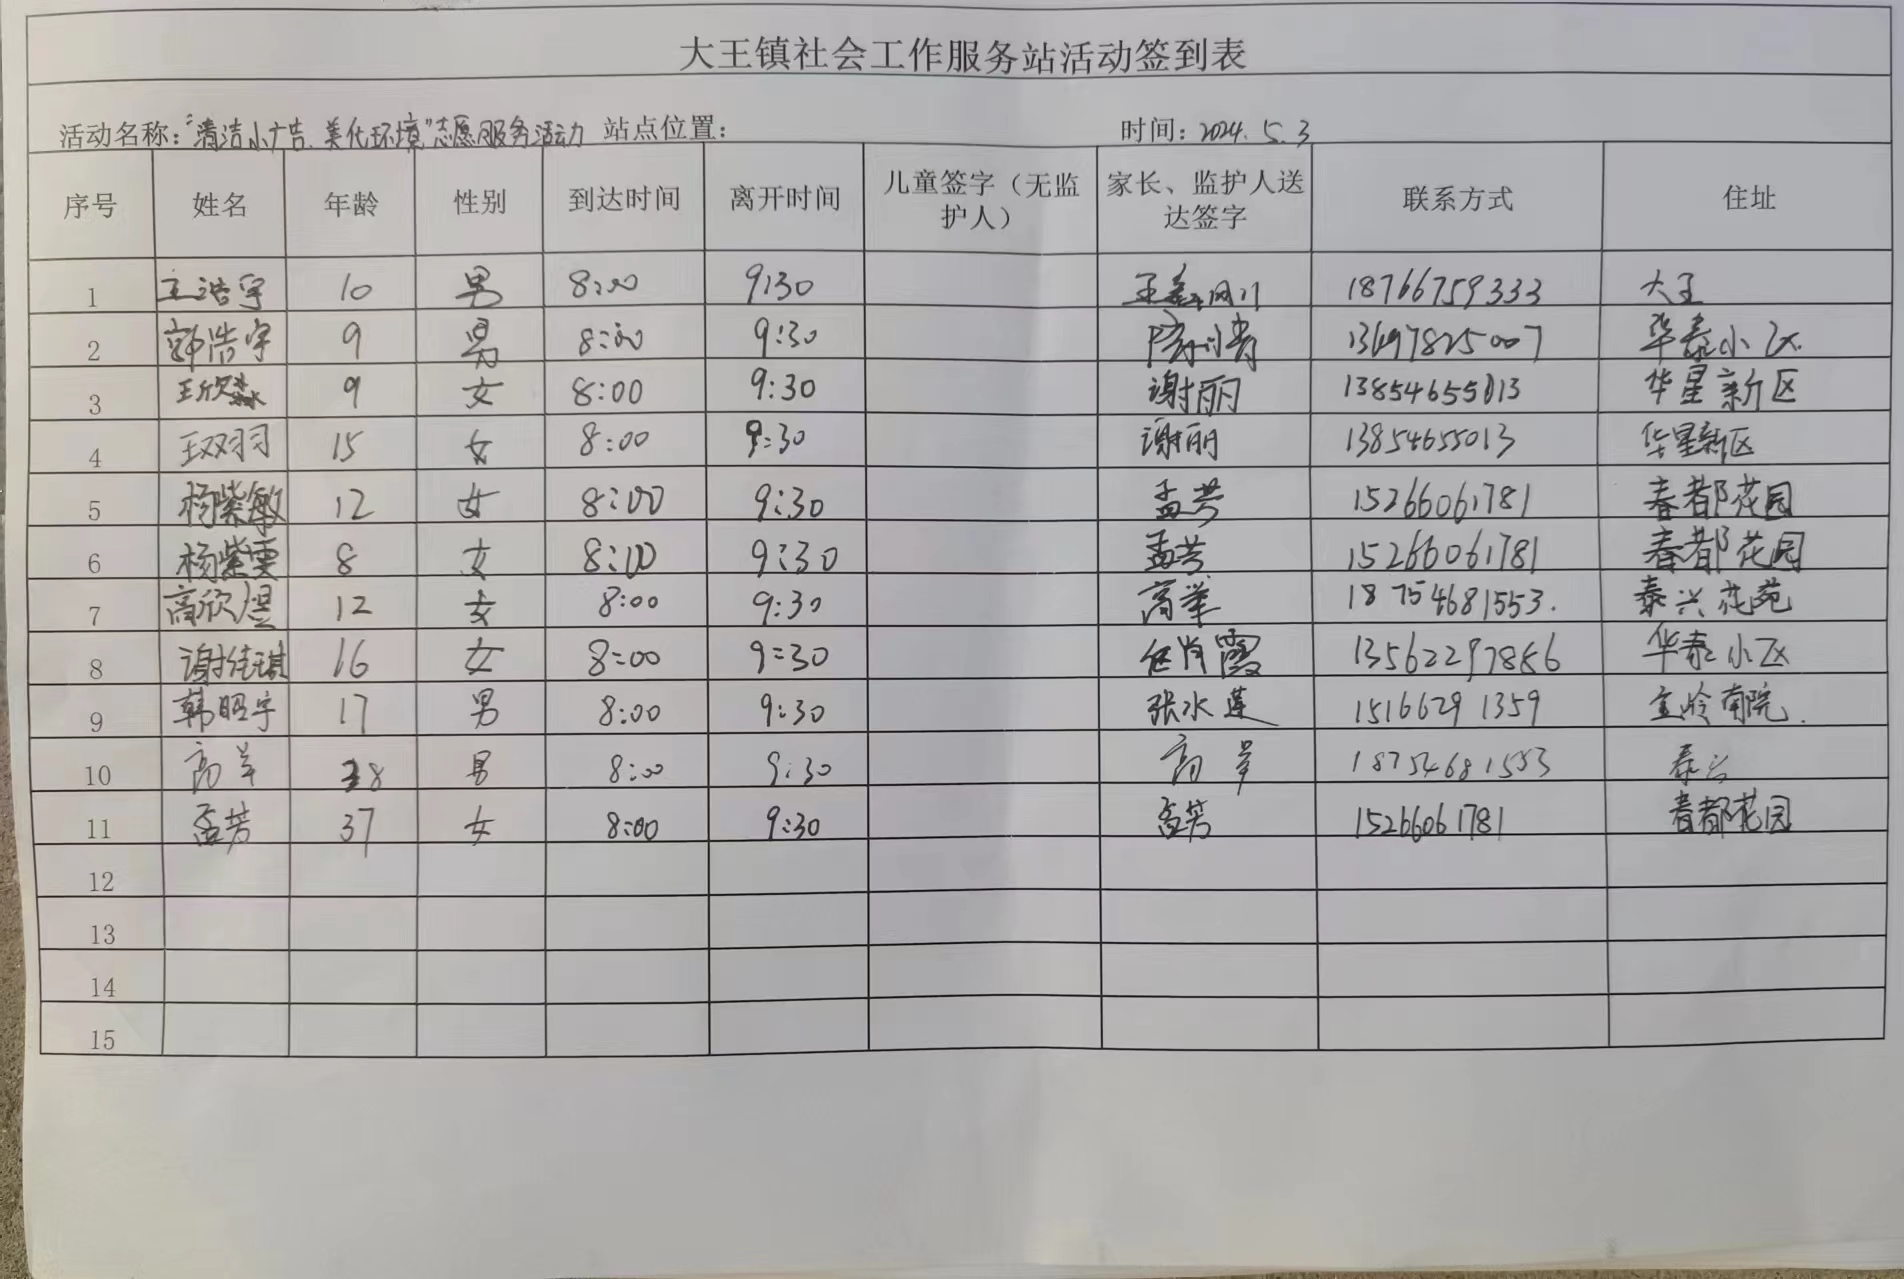 大王镇社会工作服务站活动签到表
活动名称："清洁小广告、美化环境"志愿服务活动 站点位置： 时间：2024.5.3
序号 姓名 年龄 性别 到达时间 离开时间 儿童签字（无监护人） 家长、监护人送达签字 联系方式 住址
1 王浩宇 10 男 8:00 9:30 18766759333 大王
2 郭浩宇 9 男 8:00 9:30 华泰小区
3 王欣淼 9 女 8:00 9:30 谢丽 13854655013 华星新区
4 王双羽 15 女 8:00 9:30 谢丽 13854655013 华星新区
5 杨紫敏 12 女 8:00 9:30 孟芳 15266061781 春都花园
6 杨紫雯 8 女 8:00 9:30 孟芳 15266061781 春都花园
7 高欣煜 12 女 8:00 9:30 高举 18754681553. 泰兴花苑
8 谢佳琪 16 女 8:00 9:30 任肖霞 13562297886 华泰小区
9 韩昭宇 17 男 8:00 9:30 张水莲 15166291359 金岭南院.
10 高举 38 男 8:00 9:30 高举 18754681553 泰兴
11 孟芳 37 女 8:00 9:30 孟芳 15266061781 春都花园
12
13
14
15